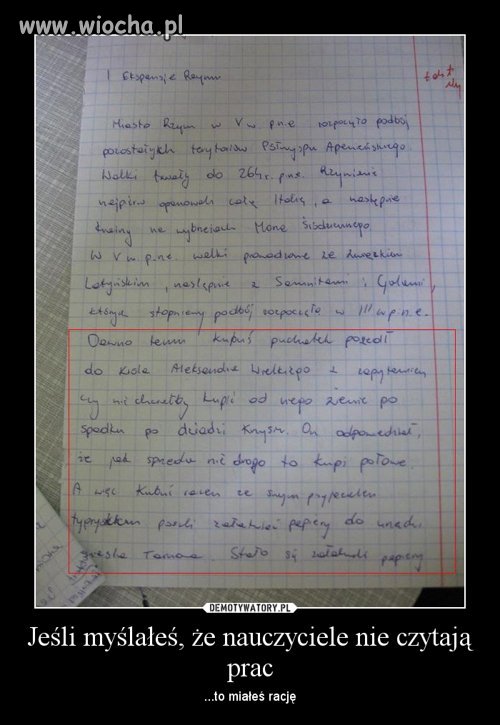 www.wiocha.pl
1 Ekspansje Rzymu
Miasto Rzym w V w. p.n.e rozpoczęło podbój
pozostałych terytoriów Półwyspu Apenińskiego.
Walki trwały do 264 r. p.n.e. Rzymianie
najpierw opanowali całą Italię, a następnie
krainy na wybrzeżach Morza Śródziemnego
W V w. p.n.e. walki prowadzone ze Związkiem
Latyńskim, następnie z Samnitami i Galami,
stopniowy podbój rozpoczęto w III w p.n.e.
Dawno temu kubuś puchatek poszedł
do Aleksandra Wielkiego z zapytaniem
czy nie chciałby kupić od niego ziemię po
spadku po dziadzi Krzysiu. On odpowiedział,
że jak sprzeda nie drogo to kupi połowe.
A więc Kubuś razem ze swym przyjacielem
tygryskiem poszli załatwiać papiery do
Stało się załatwili papiery
DEMOTYWATORY.PL
Jeśli myślałeś, że nauczyciele nie czytają
prac
...to miałeś rację